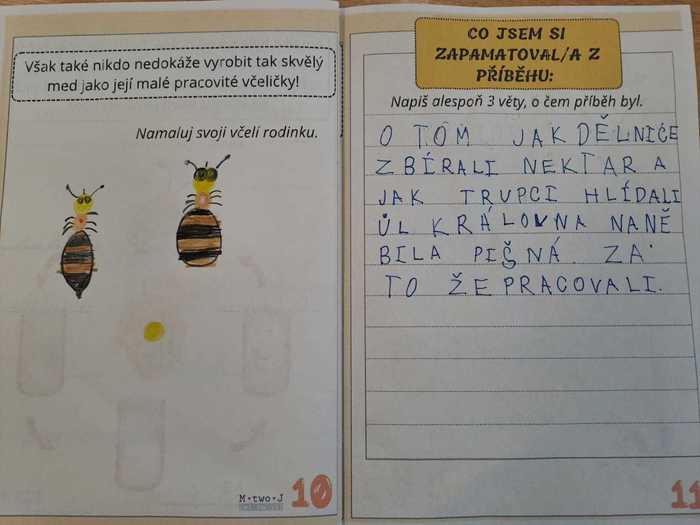 Však také nikdo nedokáže vyrobit tak skvělý
med jako její malé pracovité včeličky!
Namaluj svoji včelí rodinku.
M•two•J
10
CO JSEM SI
ZAPAMATOVAL/A Z
PŘÍBĚHU:
Napiš alespoň 3 věty, o čem příběh byl.
O TOM JAK DĚLNICE
ZBÍRALI NEKTAR A
JAK TRUPCI HLÍDALI
ÚL KRÁLOVNA NANĚ
BILA PIŠNÁ. ZA
TO ŽE PRACOVALI.
11